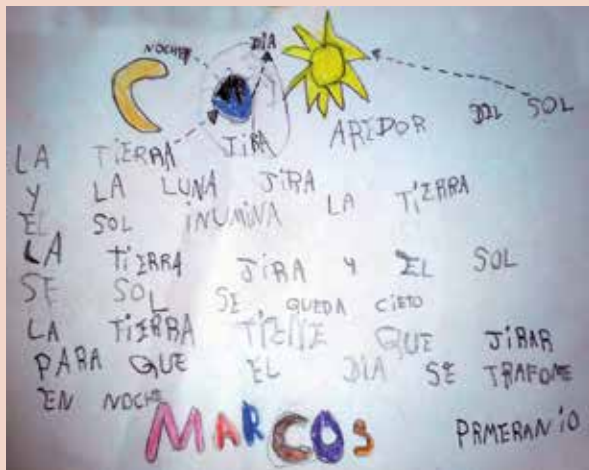 NOCHE DIA
LA TIERRA JIRA AREDOR DOL SOL
Y LA LUNA JIRA
EL SOL INUMINA LA TIERRA
LA TIERRA JIRA Y EL SOL
SE SOL SE QUEDA CIETO
LA TIERRA TIENE QUE JIRAR
PARA QUE EL DIA SE TRAFOME
EN NOCHE
MARCOS PRMERANIO